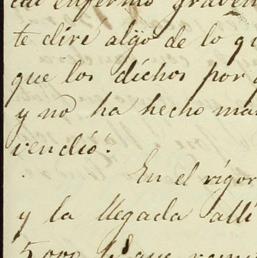 enfermo
te dire algo de lo
que los dichos por
y no ha hecho
vendió.
En el rigor
y la llegada allí
que